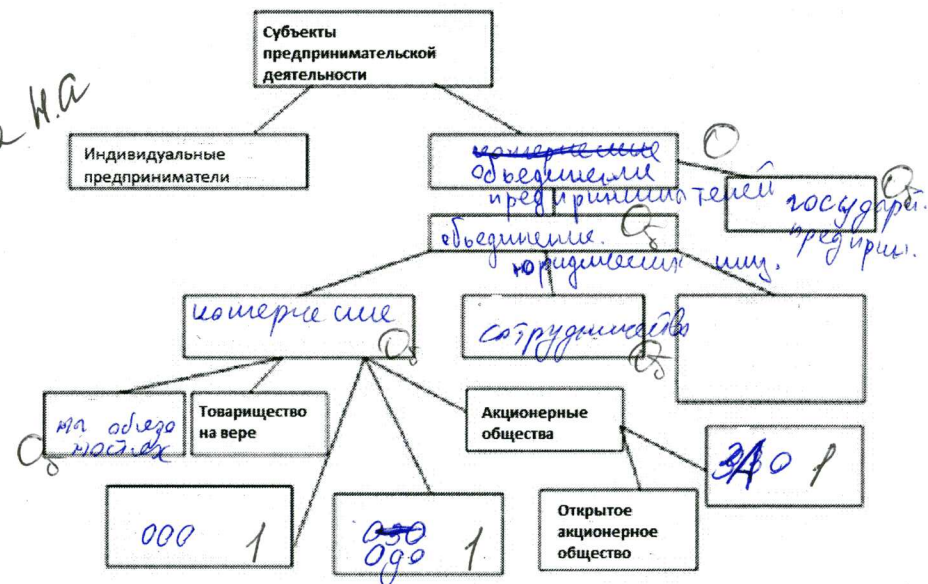 Субъекты
предпринимательской
деятельности
Н.А
Индивидуальные
предприниматели
объединени
предпринимателей
0
государст.
предприят.
0б
объединение.
юридических лиц.
0б
комерческие
0б
сотрудничество
0б
на обяза
ностях
0б
Товарищество
на вере
Акционерные
общества
ЗАО 1
ООО 1
ОДО 1
Открытое
акционерное
общество